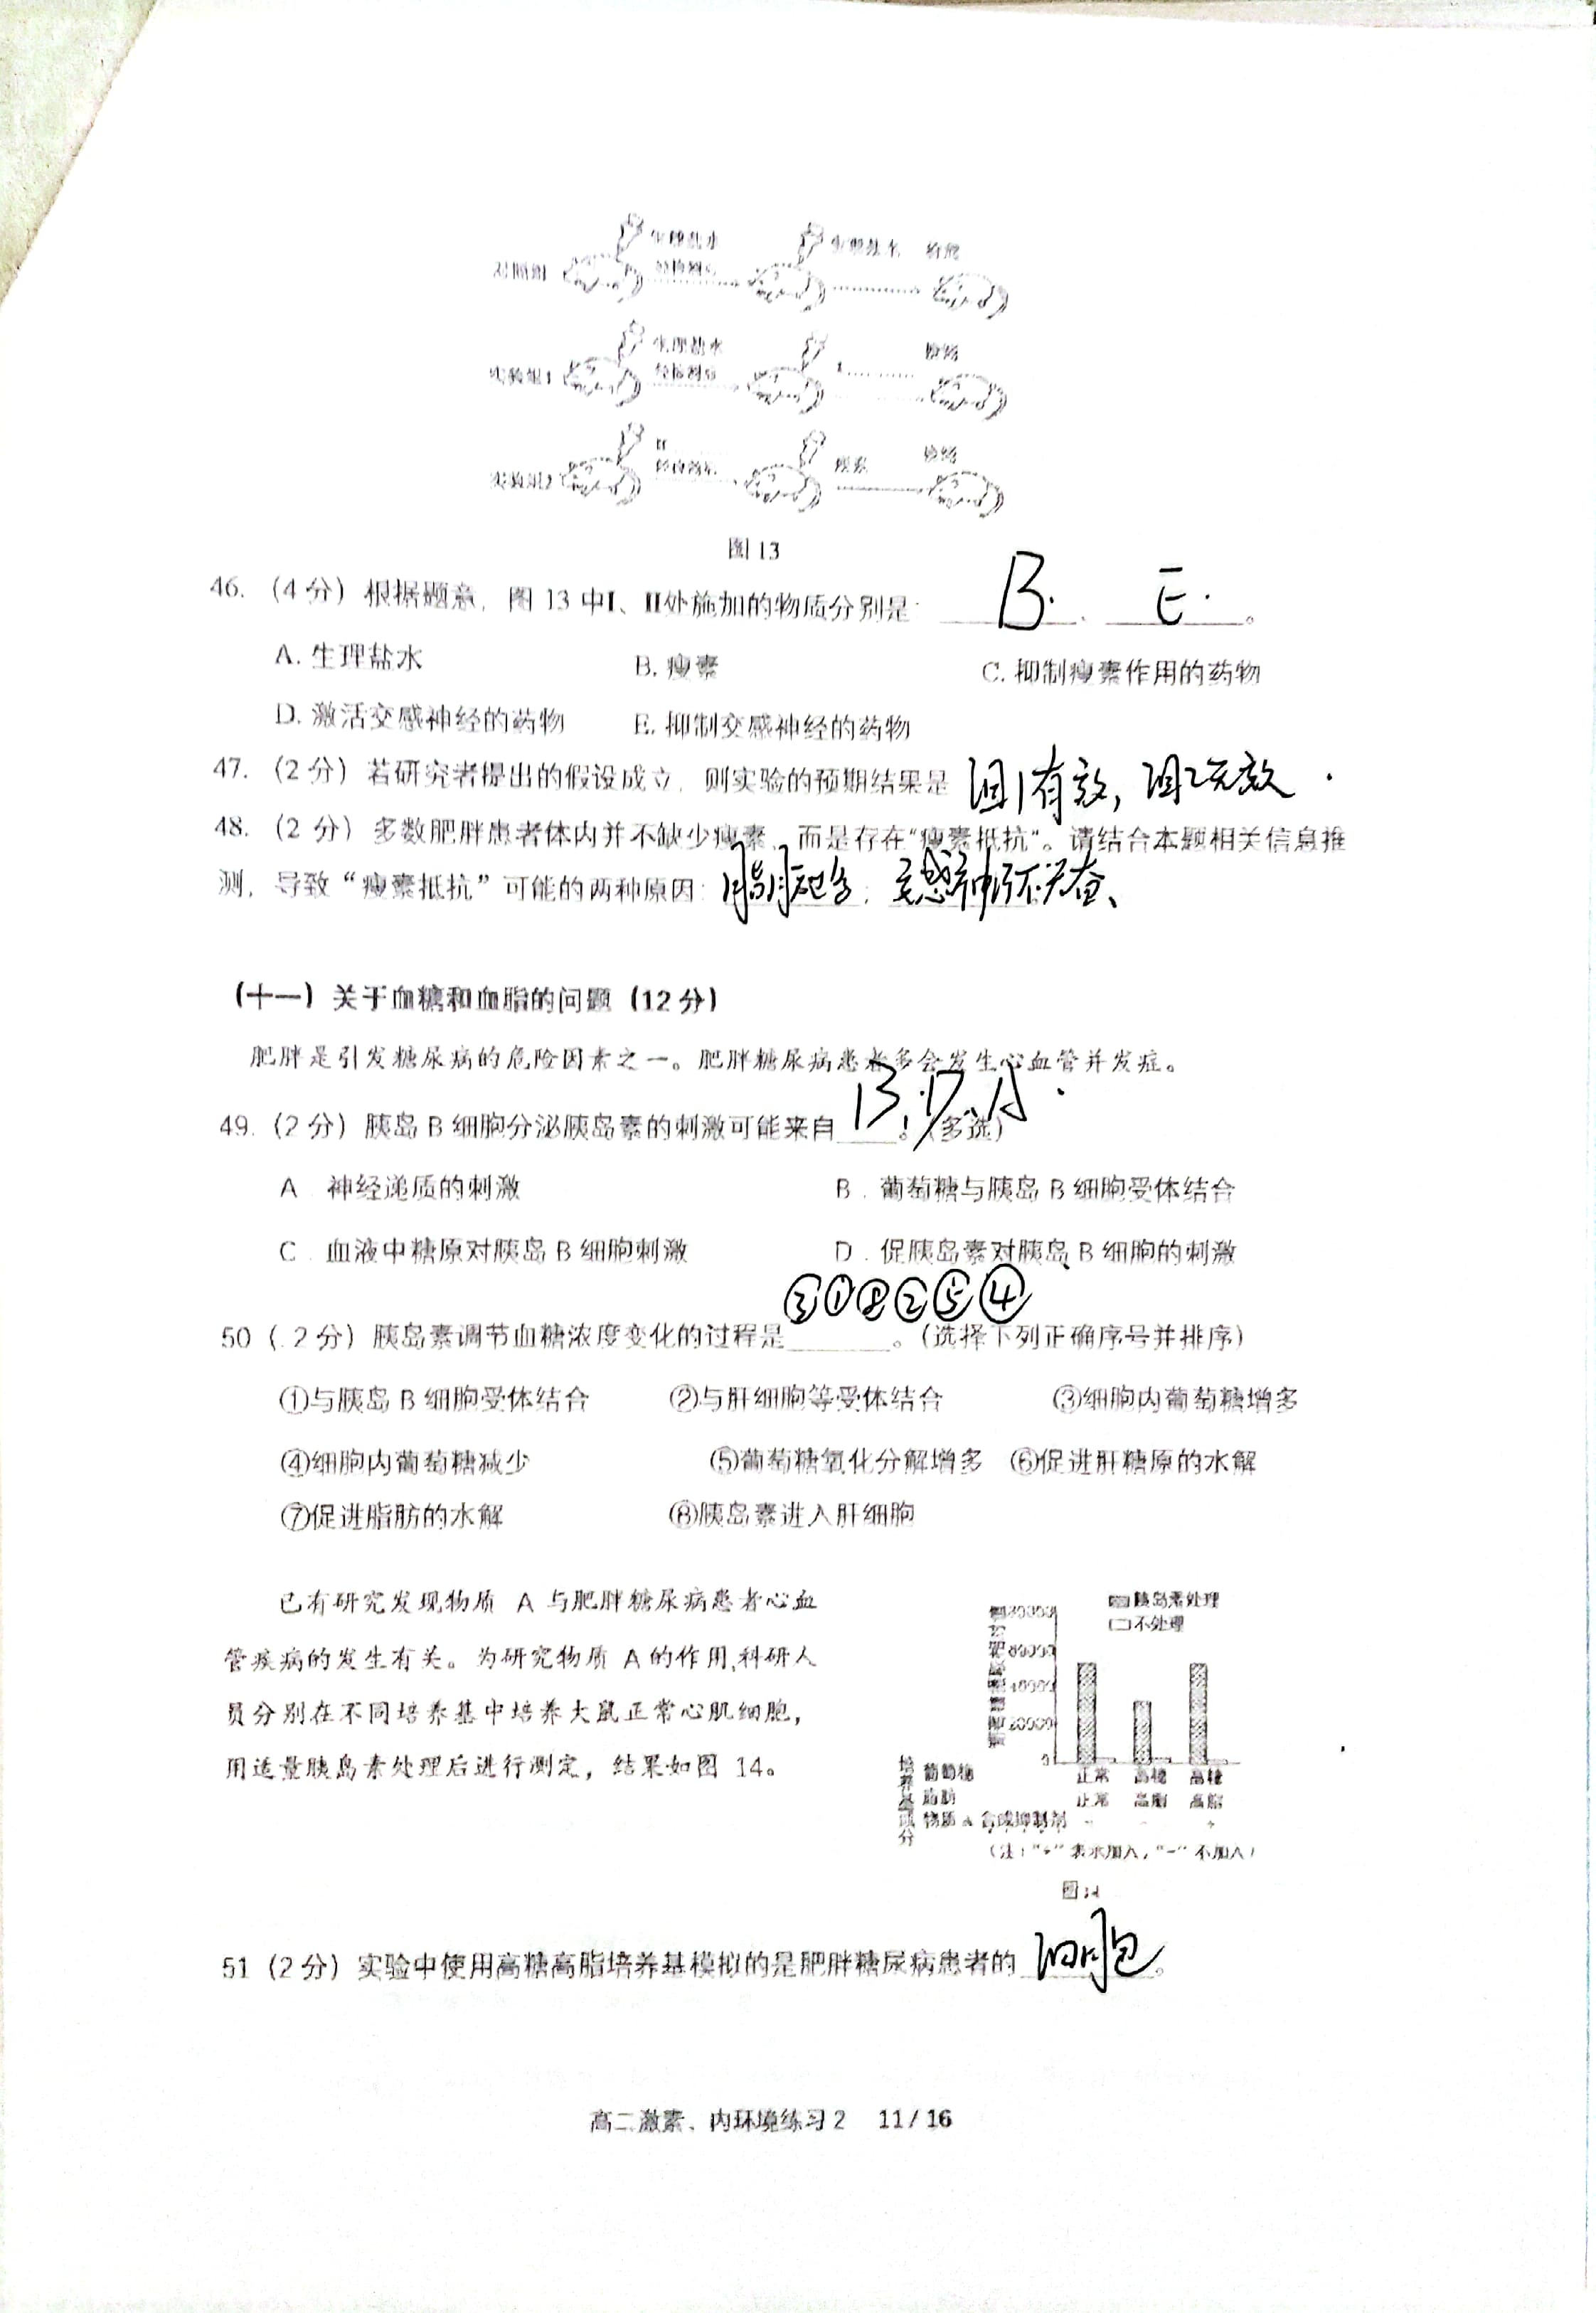 对照组 生理盐水 生理盐水 检测
实验组1 生理盐水 检测
实验组2 II 瘦素 检测
图 13
46. （4 分）根据题意，图 13 中I、II处施加的物质分别是： B. 、 E. 。
A. 生理盐水 B. 瘦素 C. 抑制瘦素作用的药物
D. 激活交感神经的药物 E. 抑制交感神经的药物
47. （2 分）若研究者提出的假设成立，则实验的预期结果是 组1有效，组2无效 .
48. （2 分）多数肥胖患者体内并不缺少瘦素，而是存在“瘦素抵抗”。请结合本题相关信息推
测，导致“瘦素抵抗”可能的两种原因： ； 交感神经不兴奋、
（十一）关于血糖和血脂的问题（12 分）
肥胖是引发糖尿病的危险因素之一。肥胖糖尿病患者多会发生心血管并发症。
49.（2 分）胰岛 B 细胞分泌胰岛素的刺激可能来自 B、D、A 。（多选）
A . 神经递质的刺激 B . 葡萄糖与胰岛 B 细胞受体结合
C . 血液中糖原对胰岛 B 细胞刺激 D . 促胰岛素对胰岛 B 细胞的刺激
③①⑧②⑤④
50（ 2 分）胰岛素调节血糖浓度变化的过程是 。（选择下列正确序号并排序）
①与胰岛 B 细胞受体结合 ②与肝细胞等受体结合 ③细胞内葡萄糖增多
④细胞内葡萄糖减少 ⑤葡萄糖氧化分解增多 ⑥促进肝糖原的水解
⑦促进脂肪的水解 ⑧胰岛素进入肝细胞
已有研究发现物质 A 与肥胖糖尿病患者心血
管疾病的发生有关。为研究物质 A 的作用,科研人
员分别在不同培养基中培养大鼠正常心肌细胞，
用适量胰岛素处理后进行测定，结果如图 14。
胰岛素处理
不处理
80000
60000
40000
20000
0
培养基成分
葡萄糖 正常 高糖 高糖
脂肪 正常 高脂 高脂
物质 A 合成抑制剂 - - +
（注："+" 表示加入，"-" 不加入）
图 14
51（2 分）实验中使用高糖高脂培养基模拟的是肥胖糖尿病患者的 细胞 。
高二激素、内环境练习 2 11 / 16